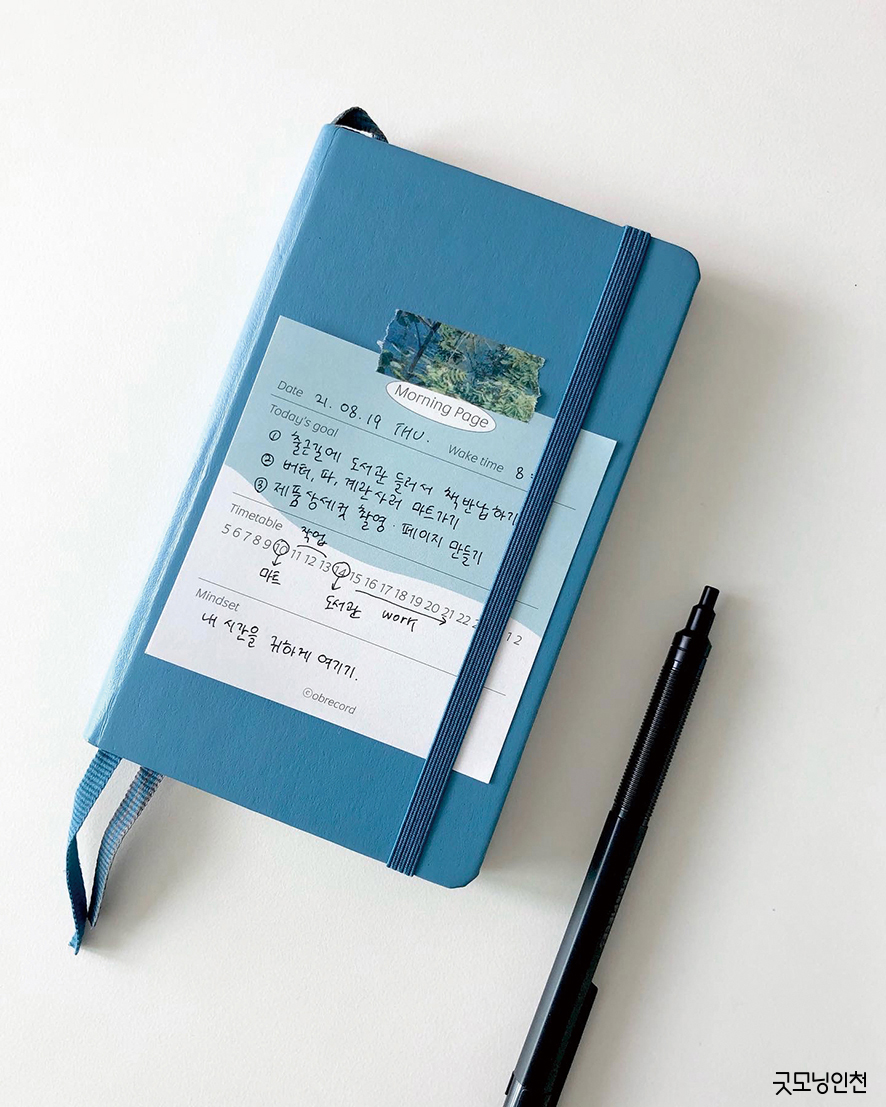 Morning Page
Date 21. 08. 19 THU.
Wake time 8:
Today's goal
① 출근길에 도서관 들러서 책 반납하기
② 버터, 파, 계란 사러 마트가기
③ 제품상세컷 촬영·페이지 만들기
Timetable 작업
5 6 7 8 9 10 11 12 13 14 15 16 17 18 19 20 21 22 2 1 2
마트 도서관 work
Mindset
내 시간을 귀하게 여기기.
©obrecord
굿모닝인천